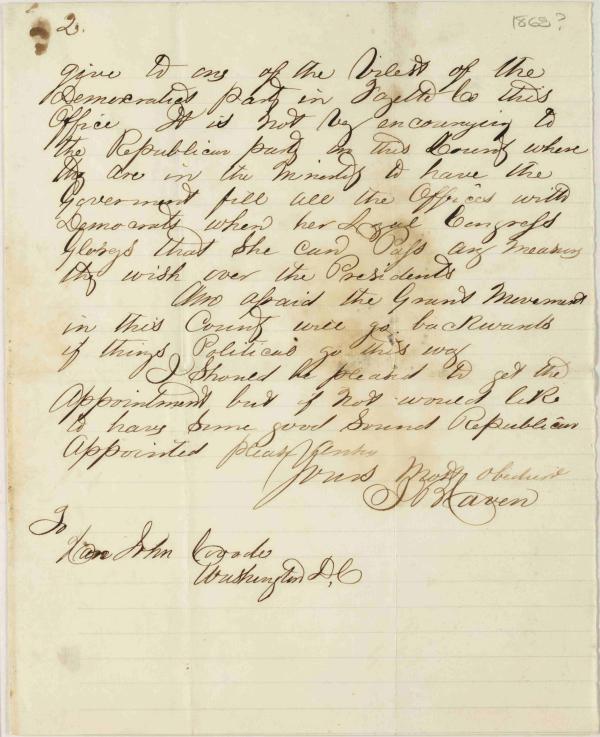 2.
1868?
give to one of the Vilest of the
Democratics Party in Fayette Co this
Office It is not vey encouraging to
the Republican party in this County where
thy are in the Minority to have the
Goverment fill all the Offices with
Democrats when her Loyal Congress
Glorys that She can Pass any measure
thy wish over the Presidents
Am afraid the Grant Movement
in this County will go backwards
if things Politicas go this way
I Should be pleased to get the
Appointment but if not would like
to have Some good Sound Republican
Appointed please
Yours Most Obedient
Haven
To
Hon John Covode
Washington D,C